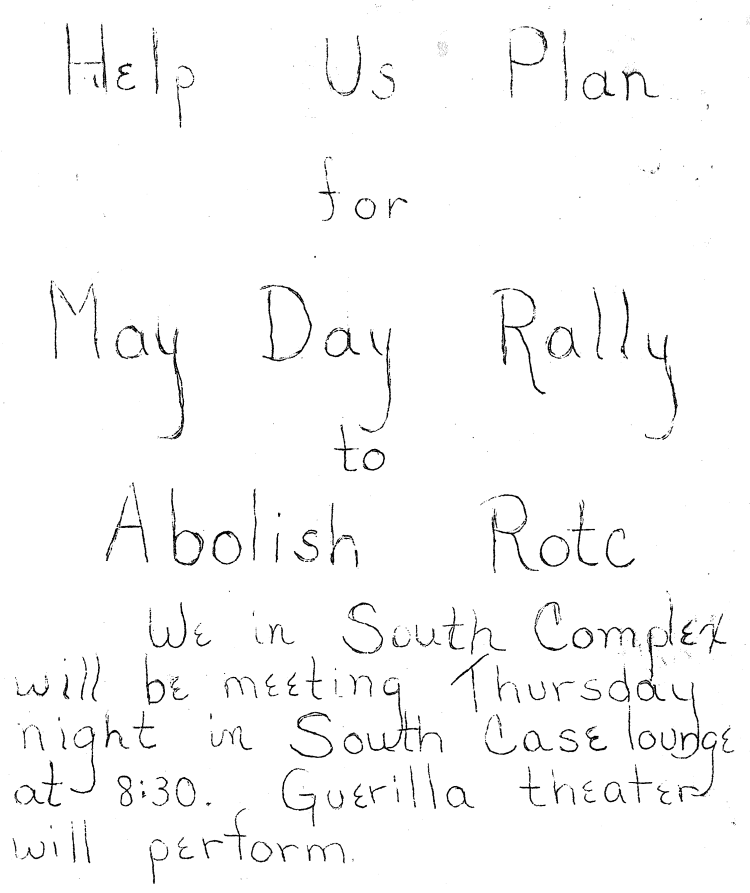 Help Us Plan
for
May Day Rally
to
Abolish Rotc
We in South Complex
will be meeting Thursday
night in South Case lounge
at 8:30. Guerilla theater
will perform.